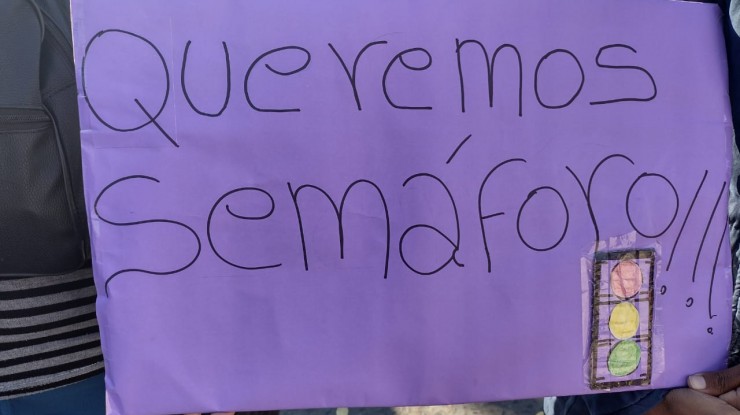 Queremos
Semáforo!!!